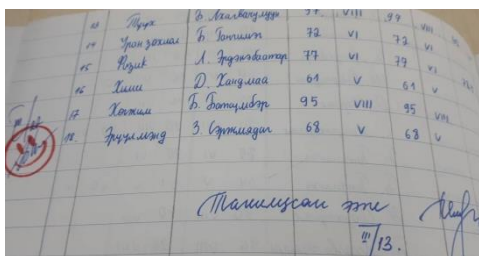 13 Түүх Б. Лхагвасүрэн 97. VIII 97 VIII
14 Уран зохиол Б. 72 VI 72 VI
15 Физик Л. Эрдэнэбаатар 77 VI 77 VI
16 Хими Д. Хандмаа 61 V 61 V
17. Хөгжим Б. Батцэмбэр 95 VIII 95 VIII
18. Эрүүл мэнд З. Сэржмядаг 68 V 68 V
Танилцсан ээж
III/13.